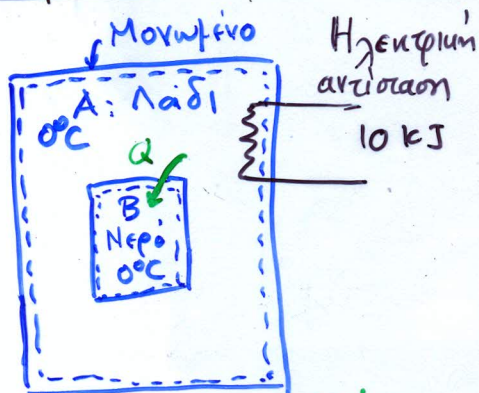 Μονωμένο
Ηλεκτρική
αντίσταση
10 kJ
Α: Λάδι
0°C
Q
Β
Νερό
0°C